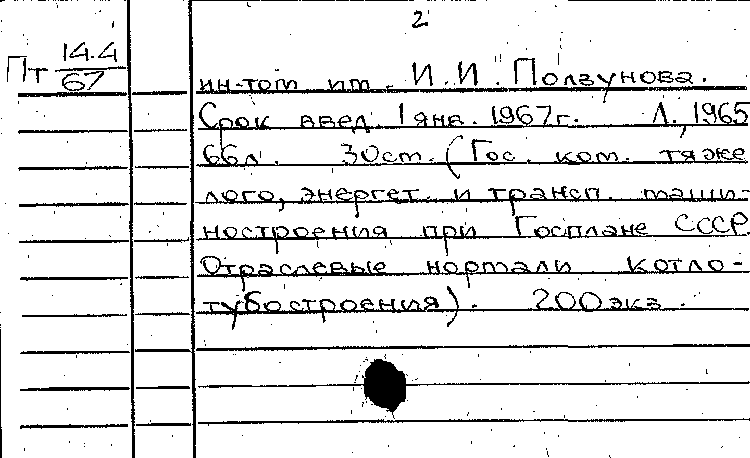 2
Пт 14.4/67
ин-том им. И.И. Ползунова.
Срок введ. 1 янв. 1967г. Л., 1965
66л. 30см. (Гос. ком. тяже
лого, энергет. и трансп. маши-
ностроения при Госплане СССР.
Отраслевые нормали котло-
турбостроения). 200экз.